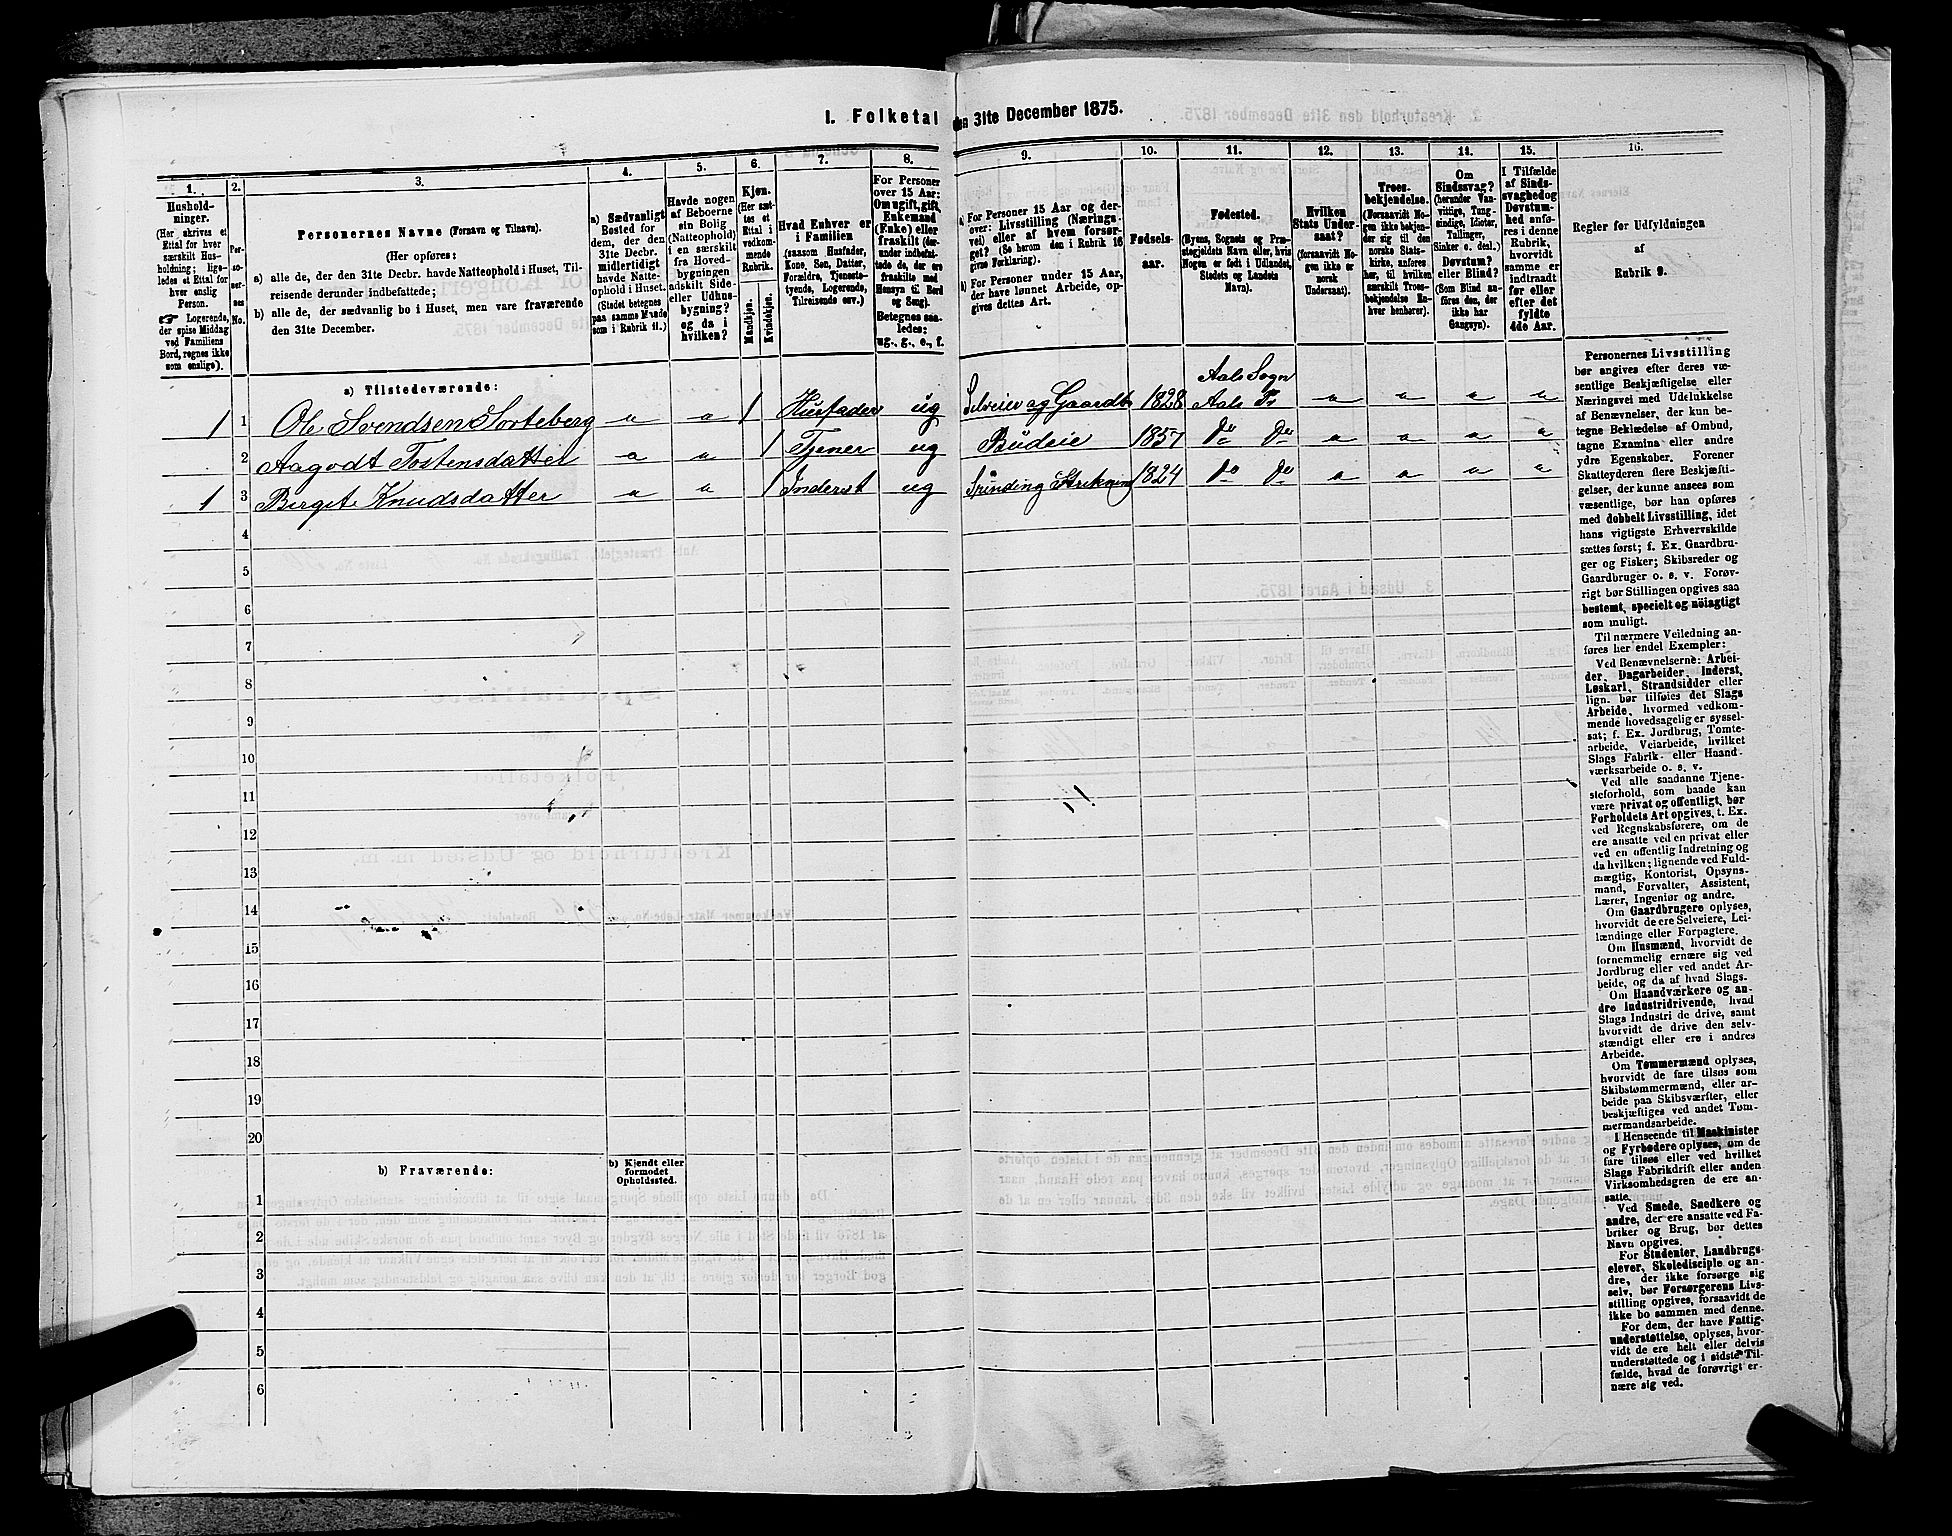 I. Folketal den 31te December 1875.
1.
2.
3.
4.
5.
6.
7.
8.
9.
10.
11.
12.
13.
14.
15.
16.
Husholdninger.
(Her skrives et
Ettal for hver
særskilt Husholdning;
ligeledes et Ettal for
hver enslig
Person.
☞ Logerende,
der spise Middag
ved Familiens
Bord, regnes ikke
som enslige).
Personernes No.
Personernes Navne (Fornavn og Tilnavn).
(Her opføres:
a) alle de, der den 31te Decbr. havde Natteophold i Huset, Til-
reisende derunder indbefattede;
b) alle de, der sædvanlig bo i Huset, men vare fraværende
den 31te December.
a) Sædvanligt
Bosted for
dem, der den
31te Decbr.
midlertidigt
havde Natte-
ophold i Huset.
(Stedet betegnes
paa samme Maade
som i Rubrik 11.)
Havde nogen
af Beboerne
sin Bolig
(Natteophold)
i en særskilt
fra Hoved-
bygningen
adskilt Side-
eller Udhus-
bygning?
og da i
hvilken?
Kjøn.
(Her sæt-
tes et
Ettal i
vedkom-
mende
Rubrik.
Mandkjøn.
Kvindekjøn.
Hvad Enhver er
i Familien
(saasom Husfader,
Kone, Søn, Datter,
Forældre, Tjeneste-
tyende, Logerende,
Tilreisende osv.)
For Personer
over 15 Aar:
Om ugift, gift,
Enkemand
(Enke) eller
fraskilt (der-
under indbefat-
tede de, der ere
fraskilte med
Hensyn til Bord
og Seng).
Betegnes saa-
ledes:
ug., g., e., f.
a) For Personer 15 Aar og der-
over: Livsstilling (Nærings-
vei) eller af hvem forsør-
get? (Se herom den i Rubrik 16
givne Forklaring).
b) For Personer under 15 Aar,
der have lønnet Arbeide, op-
gives dettes Art.
Fødsels-
aar.
Fødested.
(Byens, Sognets og Præ-
stegjeldets Navn eller, hvis
Nogen er født i Udlandet,
Stedets og Landets
Navn).
Hvilken
Stats Under-
saat?
(forsaavidt No-
gen ikke er
norsk
Undersaat).
Troes-
bekjendelse.
(Forsaavidt No-
gen ikke bekjen-
der sig til den
norske Stats-
kirke, anføres
her, til hvilken
særskilt Troes-
bekjendelse En-
hver henhører).
Om
Sindssvag?
(herunder Van-
vittige, Tung-
sindige, Idioter,
Tullinger,
Sinker o. desl.)
Døvstum?
eller Blind?
(Som Blind an-
føres den, der
ikke har
Gangsyn).
I Tilfælde
af Sinds-
svaghed og
Døvstum-
hed anfø-
res i denne
Rubrik,
hvorvidt
samme er
indtraadt
før eller
efter det
fyldte
4de Aar.
Regler for Udfyldningen
af
Rubrik 9.
a) Tilstedeværende:
1 1 Ole Svendsen Sorteberg " " 1 Husfader ug Selveier og Gaardb 1828 Aals Sogn Aals Pr " " " "
2 Aagodt Tostensdatter " " 1 Tjener ug Budeie 1857 Do Do " " " "
1 3 Birgit Knudsdatter " " 1 Inderst ug Spinding Strikning 1824 Do Do " " " "
4
5
6
7
8
9
10
11
12
13
14
15
16
17
18
19
20
b) Fraværende:
b) Kjendt eller
formodet
Opholdssted.
1
2
3
4
5
6
Personernes Livsstilling
bør angives efter deres væ-
sentlige Beskjæftigelse eller
Næringsvei med Udelukkelse
af Benævnelser, der kun be-
tegne Beklædelse af Ombud,
tagne Examina eller andre
ydre Egenskaber. Forener
Skatteyderen flere Beskjæfti-
gelser, der kunne ansees som
væsentlige, bør han opføres
med dobbelt Livsstilling, idet
hans vigtigste Erhvervskilde
sættes først; f. Ex. Gaardbru-
ger og Fisker; Skibsreder og
Gaardbruger o. s. v. Forøv-
rigt bør Stillingen opgives saa
bestemt, specielt og nöiagtigt
som muligt.
Til nærmere Veiledning an-
føres her endel Exempler:
Ved Benævnelserne: Arbei-
der, Dagarbeider, Inderst,
Løskarl, Strandsidder eller
lign. bør tilføies det Slags
Arbeide, hvormed vedkom-
mende hovedsagelig er syssel-
sat; f. Ex. Jordbrug, Tomte-
arbeide, Veiarbeide, hvilket
Slags Fabrik- eller Haand-
værksarbeide o. s. v.
Ved alle saadanne Tjene-
steforhold, som baade kan
være privat og offentligt, bør
Forholdets Art opgives, t. Ex.
ved Regnskabsførere, om de
ere ansatte ved en privat eller
ved en offentlig Indretning og
da hvilken; lignende ved Fuld-
mægtig, Kontorist, Opsyns-
mand, Forvalter, Assistent,
Lærer, Ingeniør og andre.
Om Gaardbrugere oplyses,
hvorvidt de ere Selveiere, Lei-
lændinge eller Forpagtere.
Om Husmænd, hvorvidt de
fornemmelig ernære sig ved
Jordbrug eller ved andet Ar-
beide, og da af hvad Slags.
Om Haandværkere og an-
dre Industridrivende, hvad
Slags Industri de drive, samt
hvorvidt de drive den selv-
stændigt eller ere i andres
Arbeide.
Om Tømmermænd oplyses,
hvorvidt de fare tilsøs som
Skibstømmermænd, eller ar-
beide paa Skibsværfter, eller
beskjæftiges ved andet Tøm-
mermandsarbeide.
I Henseende til Maskinister
og Fyrbødere oplyses, om de
fare tilsøs eller ved hvilket
Slags Fabrikdrift eller anden
Virksomhedsgren de ere an-
satte.
Ved Smede, Snedkere og
andre, der ere ansatte ved Fa-
briker og Brug, bør dettes
Navn opgives.
For Studenter, Landbrugs-
elever, Skoledisciple og an-
dre, der ikke forsørge sig
selv, bør Forsørgerens Livs-
stilling opgives, forsaavidt de
ikke bo sammen med denne.
For dem, der have Fattig-
understøttelse, oplyses, hvor-
vidt de ere helt eller delvis
understøttede og i sidste Til-
fælde, hvad de forøvrigt er-
nære sig ved.